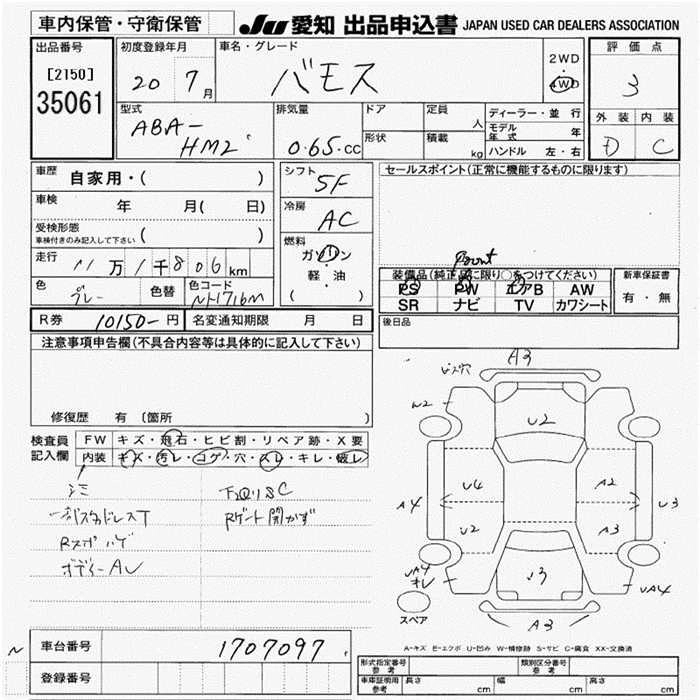 車内保管・守衛保管
JU 愛知 出品申込書 JAPAN USED CAR DEALERS ASSOCIATION
出品番号
[2150]
35061
初度登録年月
20 7月
車名・グレード
バモス
2WD
・
4WD
評価点
3
外装 内装
D C
型式
ABA-
HM2
排気量
0.65.cc
ドア
形状
定員
人
積載
kg
ディーラー・並行
モデル年式 年
ハンドル 左・右
車歴 自家用・( )
車検 年 月( 日)
受検形態
車検付きのみ記入して下さい ( )
走行 11万1千806km
色 グレー
色替
色コード
NH716M
シフト 5F
冷房 AC
燃料
ガソリン
・
軽・油
( )
セールスポイント(正常に機能するものに限ります)
Front
装備品(純正品に限り○をつけてください)
PS PW エアB AW
SR ナビ TV カワシート
新車保証書
有・無
R券 10150-円
名変通知期限 月 日
後日品
注意事項申告欄(不具合内容等は具体的に記入して下さい)
修復歴 有 〔箇所
検査員
記入欄
FW キズ・飛石・ヒビ割・リペア跡・X要
内装 キズ・汚レ・コゲ・穴・スレ・キレ・破レ
シミ
一部スタッドレスT
Rスポハゲ
ボディーAU
下回りSC
Rゲート開かず
A3
ビス穴
W2
U2
U4
A2
A4
U3
U2
A3
UA4
オレ
U3
UA4
A3
スペア
A-キズ E-エクボ U-凹み W-補修跡 S-サビ C-腐食 XX-交換済
車台番号 1707097
登録番号
N
型式指定番号
参考
類別区分番号
参考
車庫証明用
参考
長さ cm
幅 cm
高さ cm